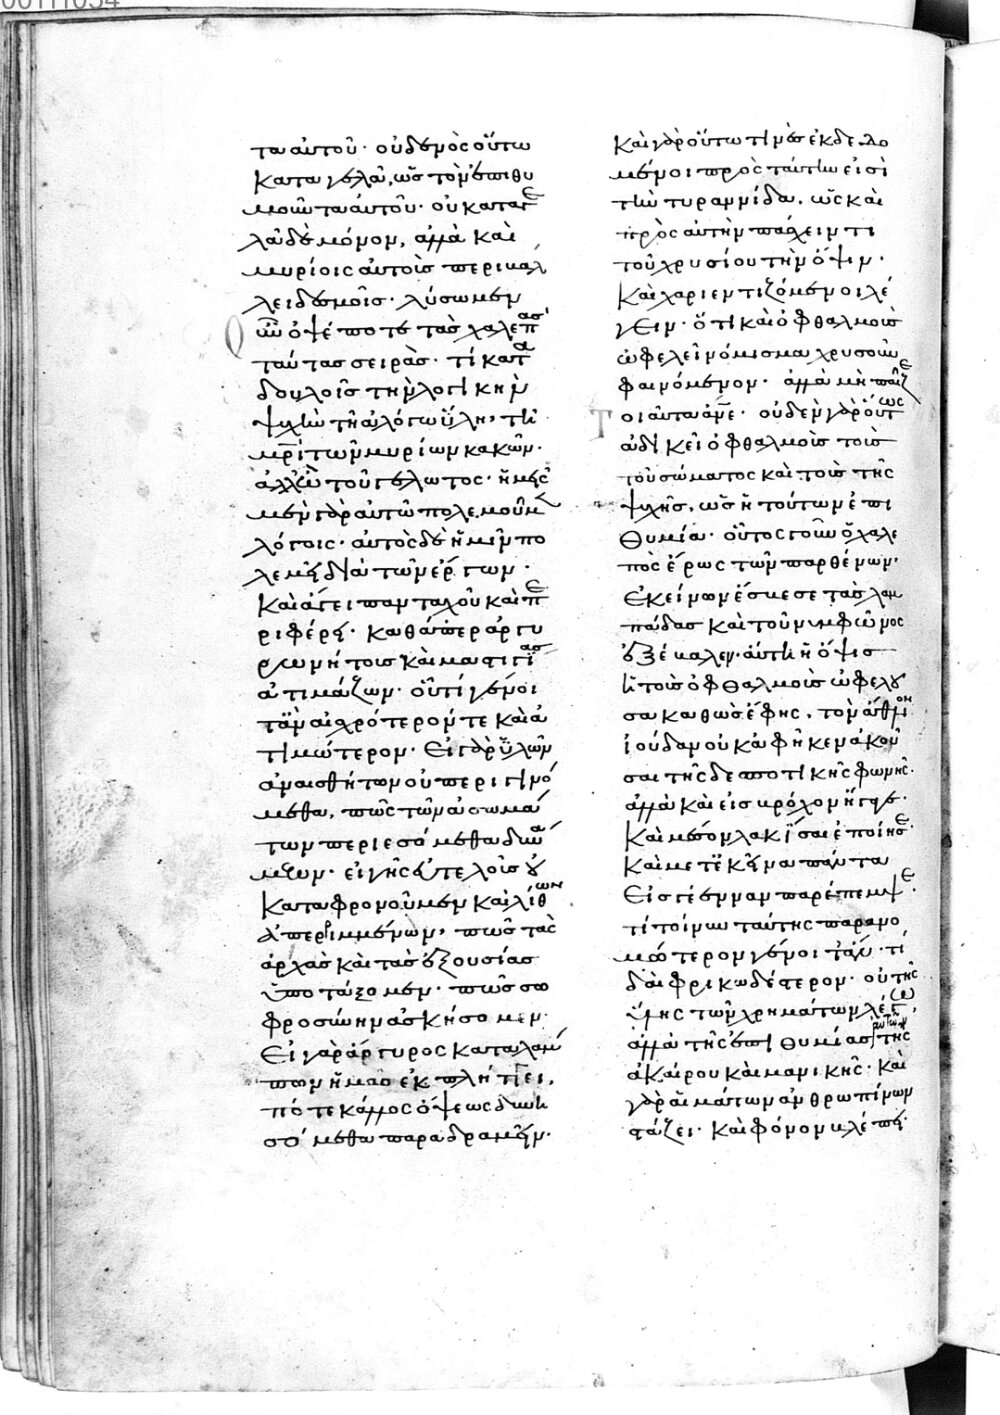 τα αὐτοῦ· οὐδενὸς οὕτω
καταγελᾶ, ὡς τὸν ἐπιθυ
μοῦντα αὐτοῦ· οὐ καταγε
λᾶ δὲ μόνον, ἀλλὰ καὶ
μυρίοις αὐτοὺς περιβάλ
λει δεσμοῖς· λύσωμεν
οὖν ὀψέ ποτε τὰς χαλεπὰς
ταύτας σειράς· τί κατα
δουλοῖς τὴν λογικὴν
ψυχὴν τῇ ἀλόγω ὕλη, τῆ
μρὶ τῶν μυρίων κακῶν·
ἀλλ' ὢ τοῦ γέλωτος· ἡμεῖς
μὲν γὰρ αὐτῶ πολεμοῦμεν
λόγοις· αὐτὸς δὲ ἡμῖν πο
λεμεῖ διὰ τῶν ἔργων·
καὶ ἄγει πανταχοῦ καὶ πε
ριφέρει· καθάπερ ἀργυ
ρωνήτους καὶ μαστιγίας
ἀτιμάζων· οὗ τί γένοι
τ' ἂν αἰσχρότερόν τε καὶ ἀ
τιμώτερον· Εἰ γὰρ ὑλῶν
ἀναισθήτων οὐ περιγινό
μεθα, πῶς τῶν ἀσωμά
των περιεσόμεθα δυνά
μεων· εἰ γῆς εὐτελοῦς οὐ
καταφρονοῦμεν καὶ λίθων
ἀπερριμμένων, πῶς τὰς
ἀρχὰς καὶ τὰς ἐξουσίας
ὑποτάξομεν· πῶς σω
φροσύνην ἀσκήσομεν·
Εἰ γὰρ ἄργυρος καταλάμ
πων ἡμᾶς ἐκπλήττει,
πότε κάλλος ὄψεως δυνη
σόμεθα παραδραμεῖν·
Καὶ γὰρ οὕτω τινὲς ἐκδεδο
μένοι πρὸς ταύτην εἰσὶ
τὴν τυραννίδα, ὡς καὶ
πρὸς αὐτὴν πάσχειν τι
τοῦ χρυσίου τὴν ὄψιν·
Καὶ χαριεντιζόμενοι λέ
γειν· ὅτι καὶ ὀφθαλμοὺς
ὠφελεῖ νόμισμα χρυσοῦν
φαινόμενον· ἀλλὰ μὴ παῖζε
τοιαῦτα ἄνε· οὐδὲν γὰρ οὕτως
ἀδικεῖ ὀφθαλμοὺς τοὺς
τοῦ σώματος καὶ τοὺς τῆς
ψυχῆς, ὡς ἡ τούτων ἐπι
θυμία· οὗτος γοῦν ὁ χαλε
πὸς ἔρως τῶν παρθένων
ἐκείνων ἔσβεσε τὰς λαμ
πάδας καὶ τοῦ νυμφῶνος
ἐξέβαλεν· αὕτη ἡ ὄψις
ἡ τοὺς ὀφθαλμοὺς ὠφελοῦ
σα καθὼς ἔφης, τὸν ἄθλιον
ἰούδαν οὐκ ἀφῆκεν ἀκοῦ
σαι τῆς δεσποτικῆς φωνῆς·
ἀλλὰ καὶ εἰς βρόχον ἤγαγε·
καὶ μέσον λακῆσαι ἐποίησε·
καὶ μετ' ἐκεῖνα πάντα
εἰς γέενναν παρέπεμψε·
τί τοίνυν ταύτης παρανο
μώτερον γένοιτ' ἄν· τί
δαὶ φρικωδέστερον· οὐ τῆς
ὕλης τῶν χρημάτων λέγω,
ἀλλὰ τῆς ἐπιθυμίας αὐτῶν τῆς
ἀκαίρου καὶ μανικῆς· καὶ
γὰρ αἱμάτων ἀνθρωπίνων
στάζει· καὶ φόνον βλέπει·